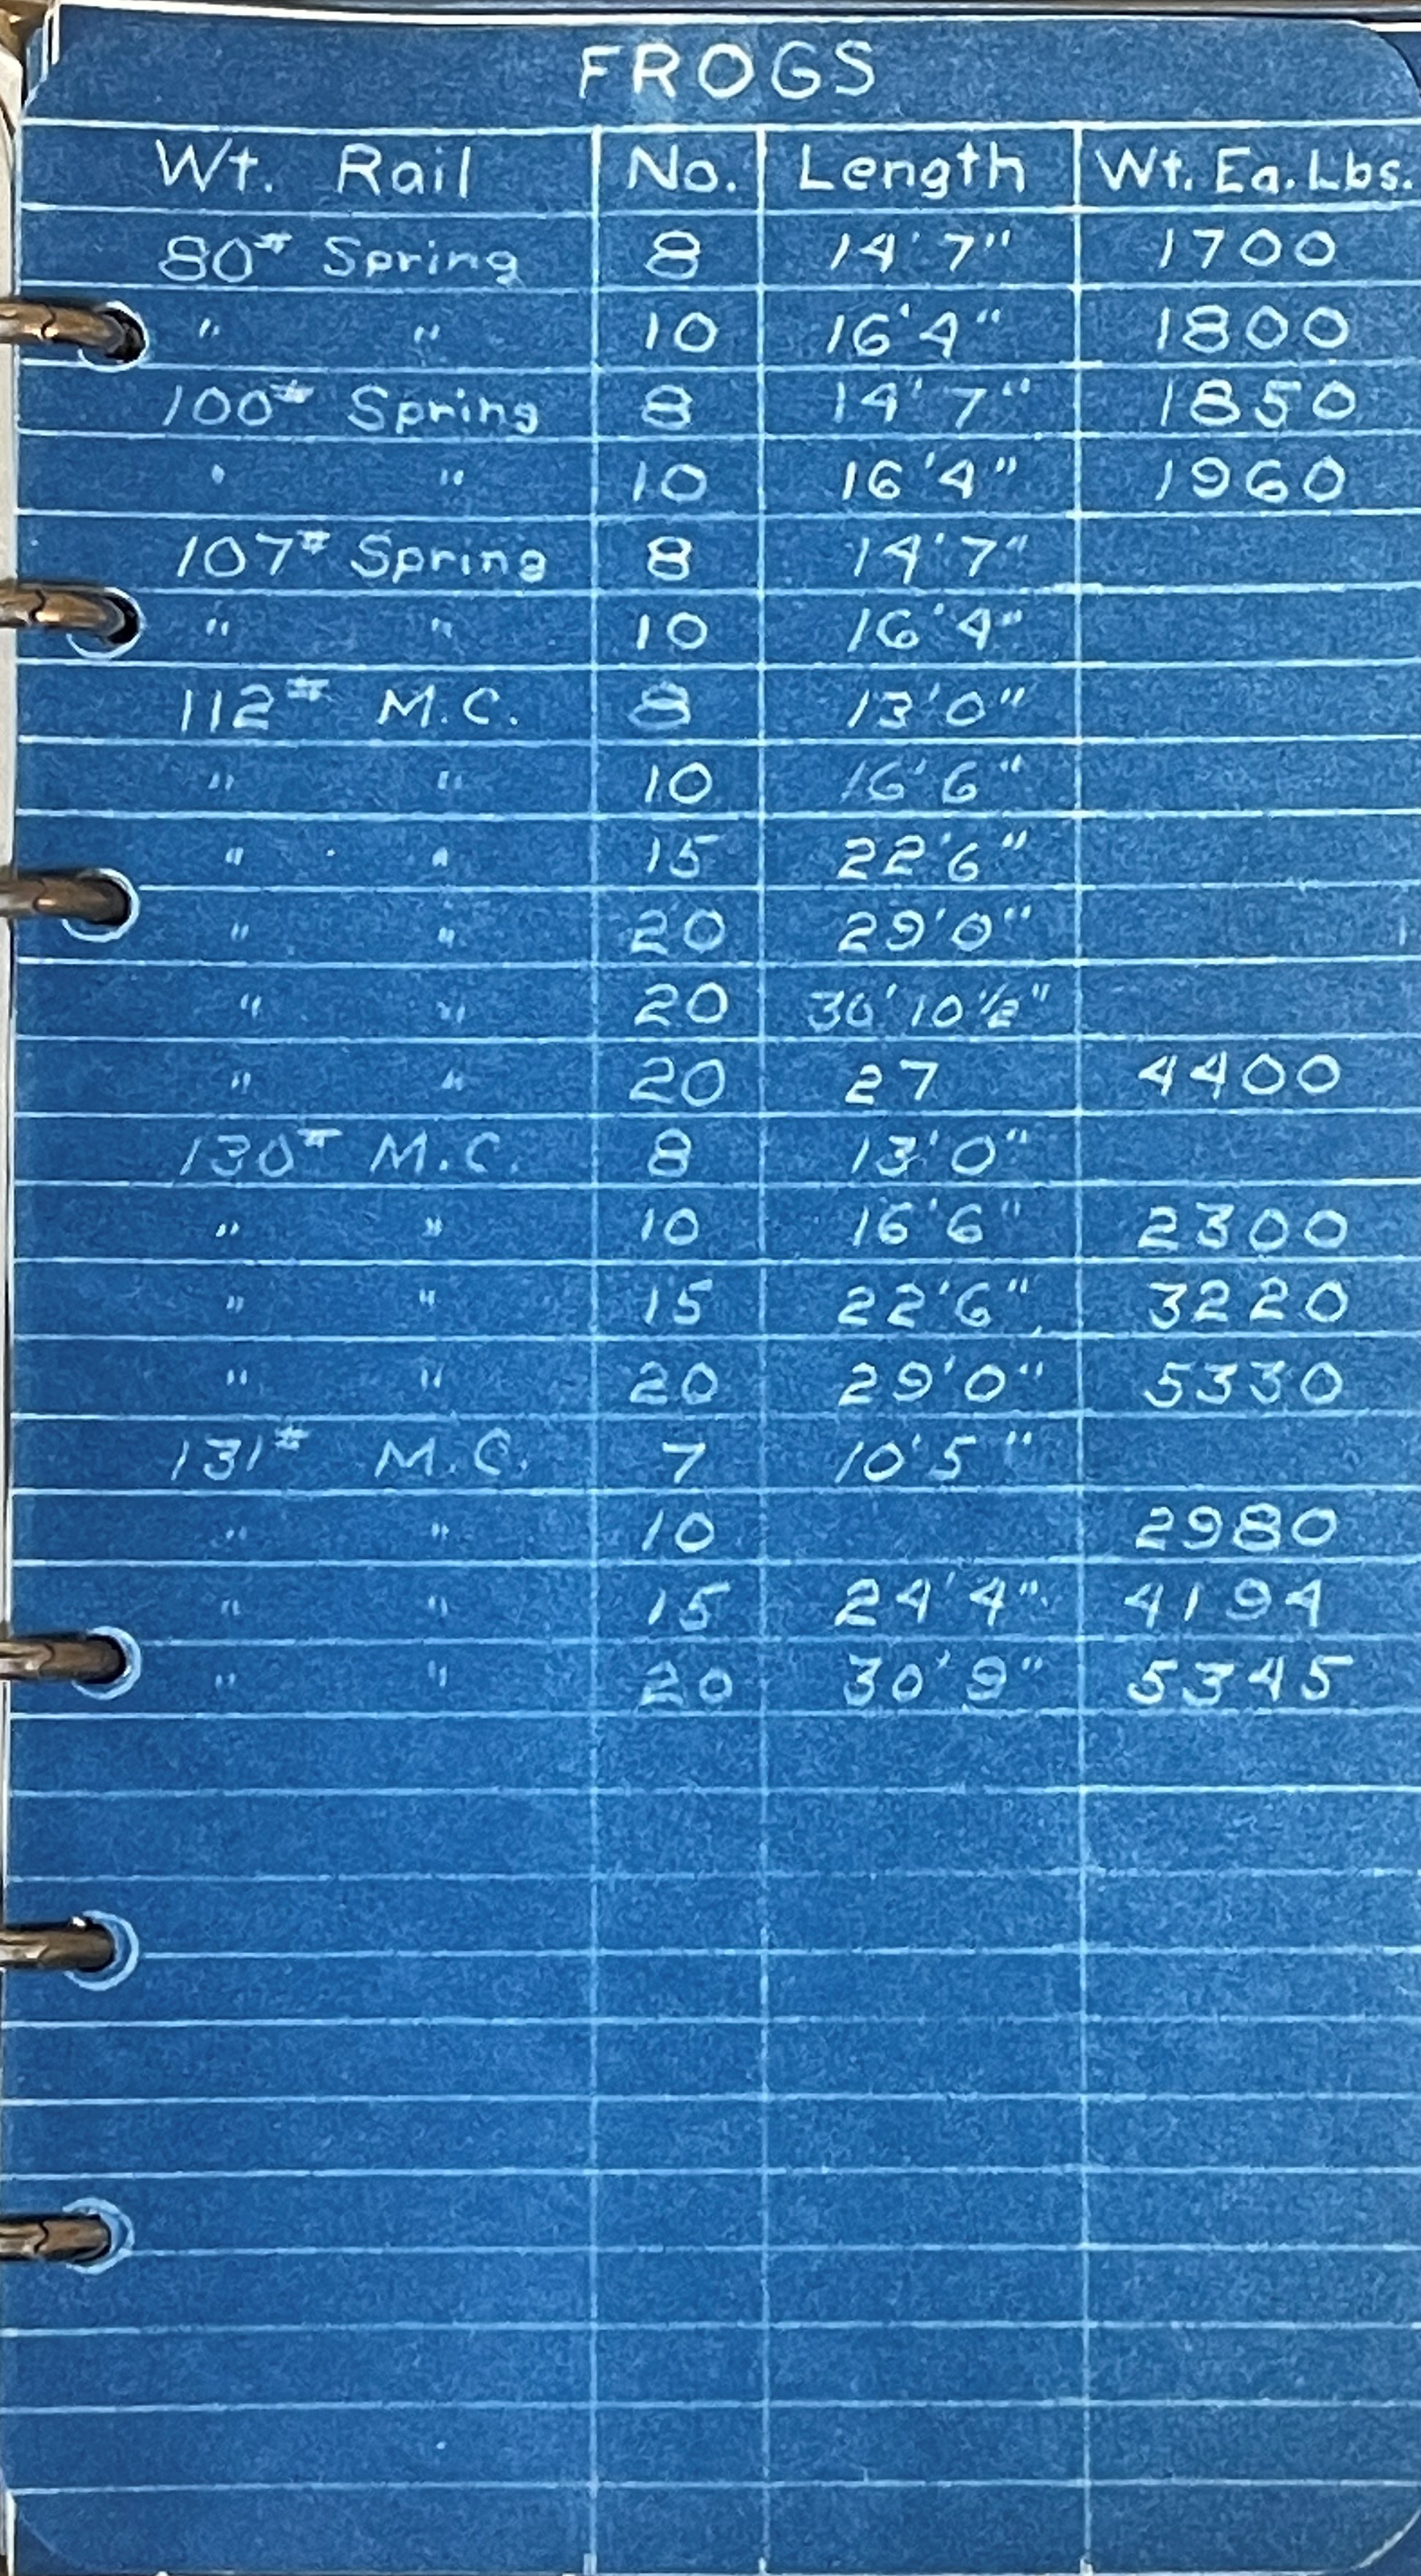 FROGS
Wt. Rail No. Length Wt. Ea. Lbs.
80# Spring 8 14' 7" 1700
" " 10 16' 4" 1800
100# Spring 8 14' 7" 1850
" " 10 16' 4" 1960
107# Spring 8 14' 7"
" " 10 16' 4"
112# M.C. 8 13' 0"
" " 10 16' 6"
" " 15 22' 6"
" " 20 29' 0"
" " 20 30' 10 1/2"
" " 20 27 4400
130# M.C. 8 13' 0"
" " 10 16' 6" 2300
" " 15 22' 6" 3220
" " 20 29' 0" 5330
131# M.C. 7 10' 5"
" " 10 2980
" " 15 24' 4" 4194
" " 20 30' 9" 5345